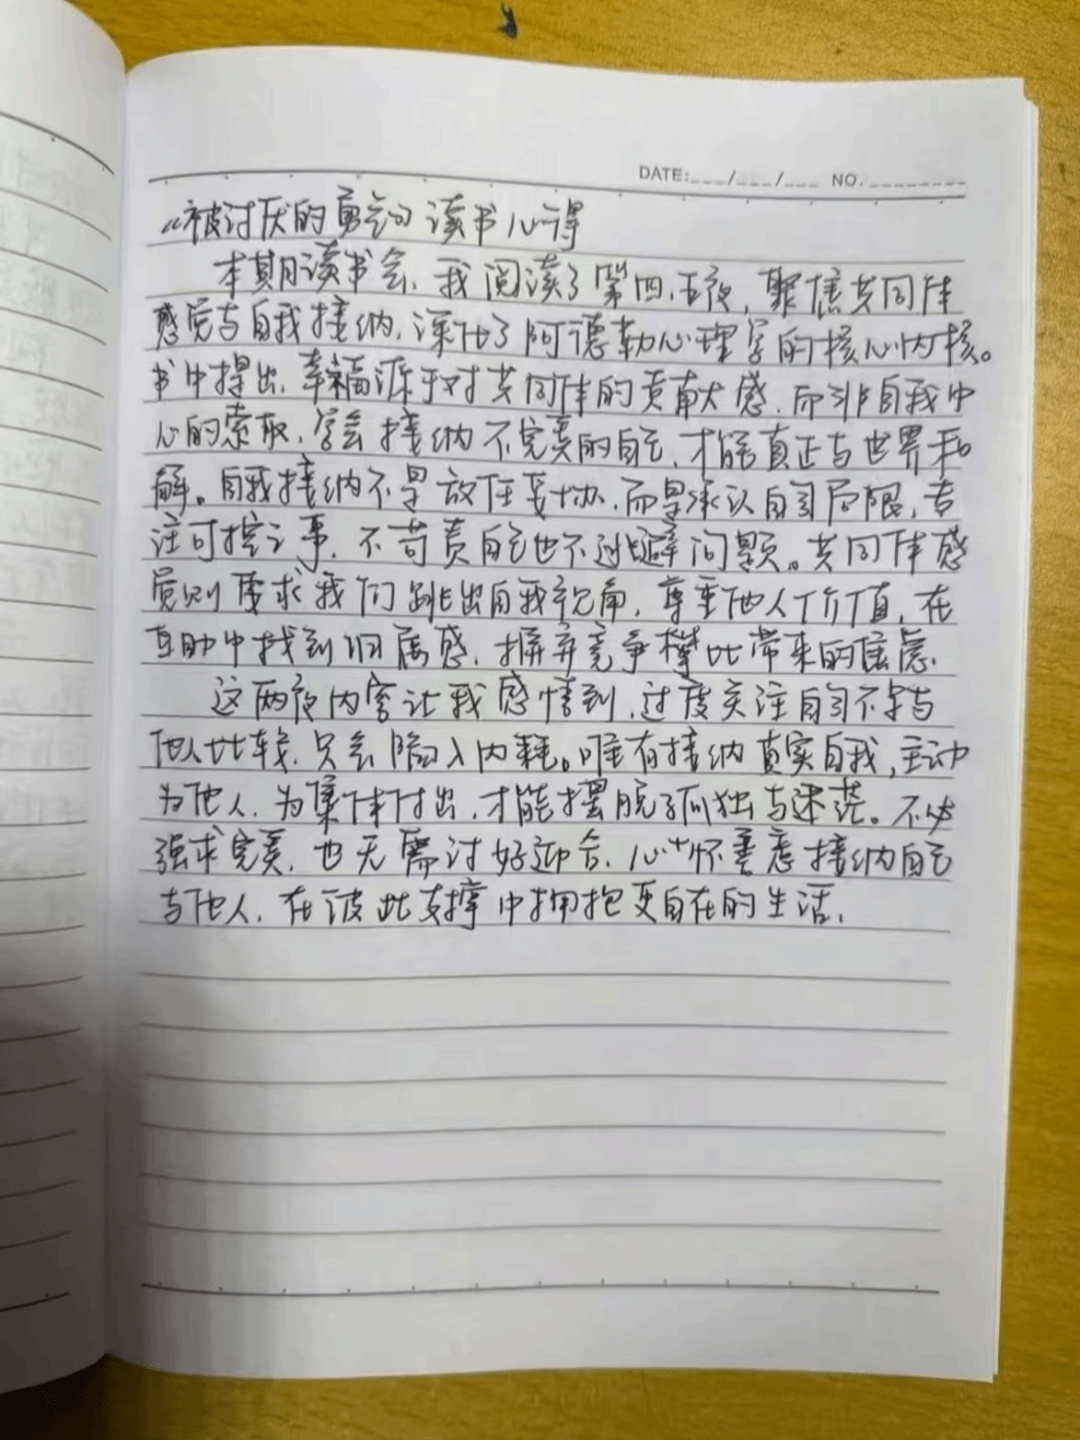 DATE:___/___/___ NO.________
《被讨厌的勇气》读书心得
本期读书会,我阅读了第四、五夜,聚焦共同体
感觉与自我接纳,深化了阿德勒心理学的核心内核。
书中提出,幸福源于对共同体的贡献感,而非自我中
心的索取,学会接纳不完美的自己,才能真正与世界和
解。自我接纳不是放任妥协,而是承认自身局限,专
注可控之事,不苛责自己也不逃避问题。共同体感
觉则要求我们跳出自我视角,尊重他人价值,在
互助中找到归属感,摒弃竞争攀比带来的焦虑.
这两夜内容让我感悟到,过度关注自身不足与
他人比较,只会陷入内耗。唯有接纳真实自我,主动
为他人,为集体付出,才能摆脱孤独与迷茫。不必
强求完美,也无需讨好迎合,心怀善意接纳自己
与他人,在彼此支撑中拥抱更自在的生活.